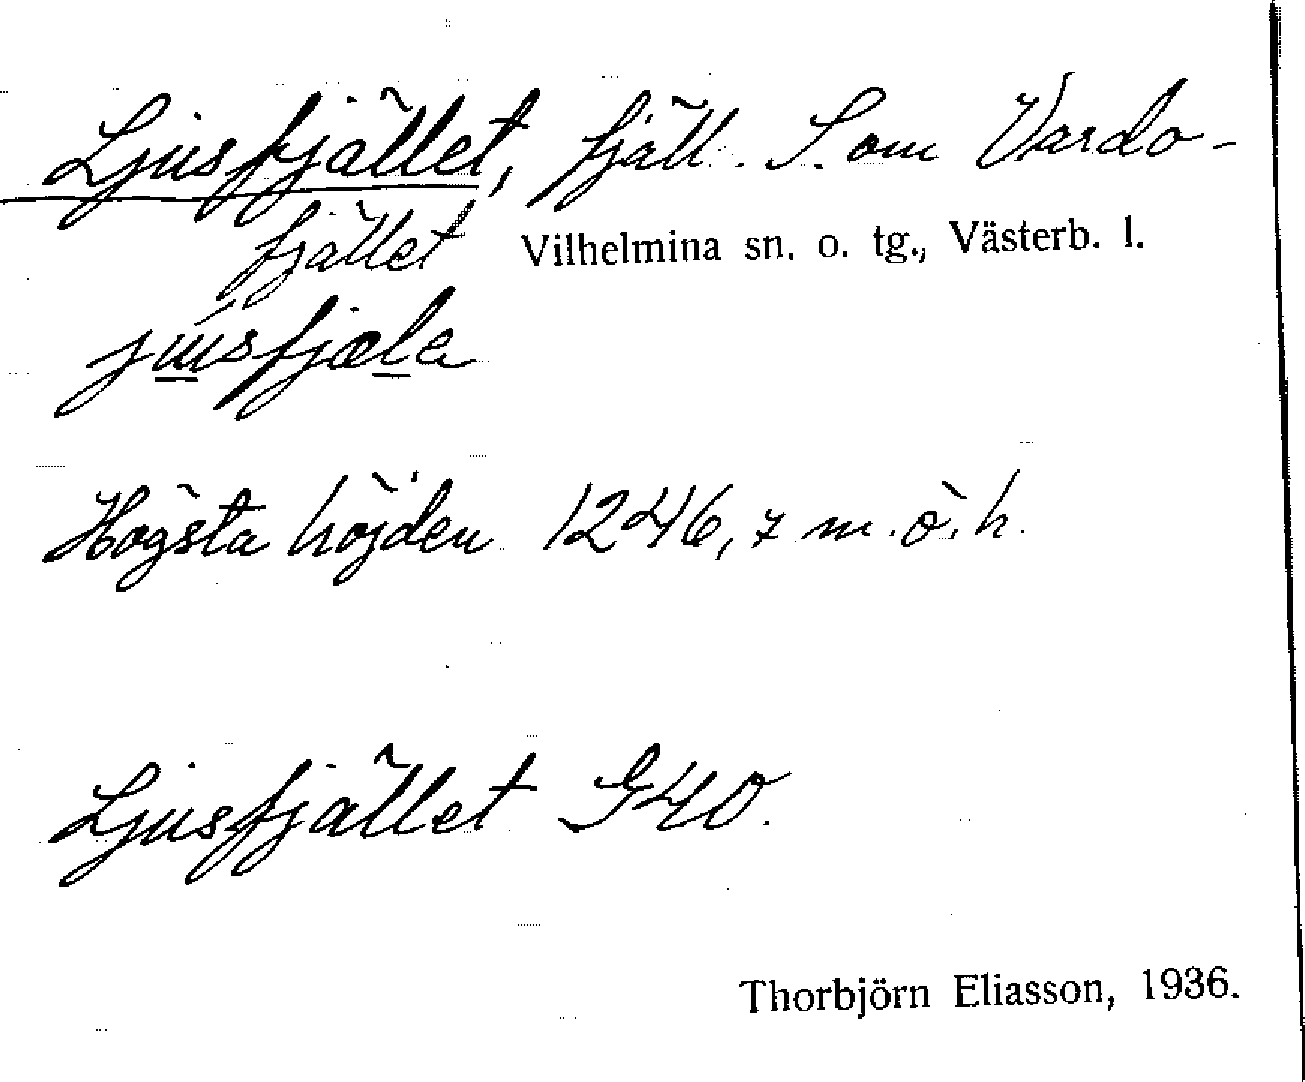 Ljusfjället, fjäll. S. om Vardo-
fjället Vilhelmina sn. o. tg., Västerb. l.
júsfjæla
Högsta höjden 1246,7 m. ö. h.
Ljusfjället G40.
Thorbjörn Eliasson, 1936.